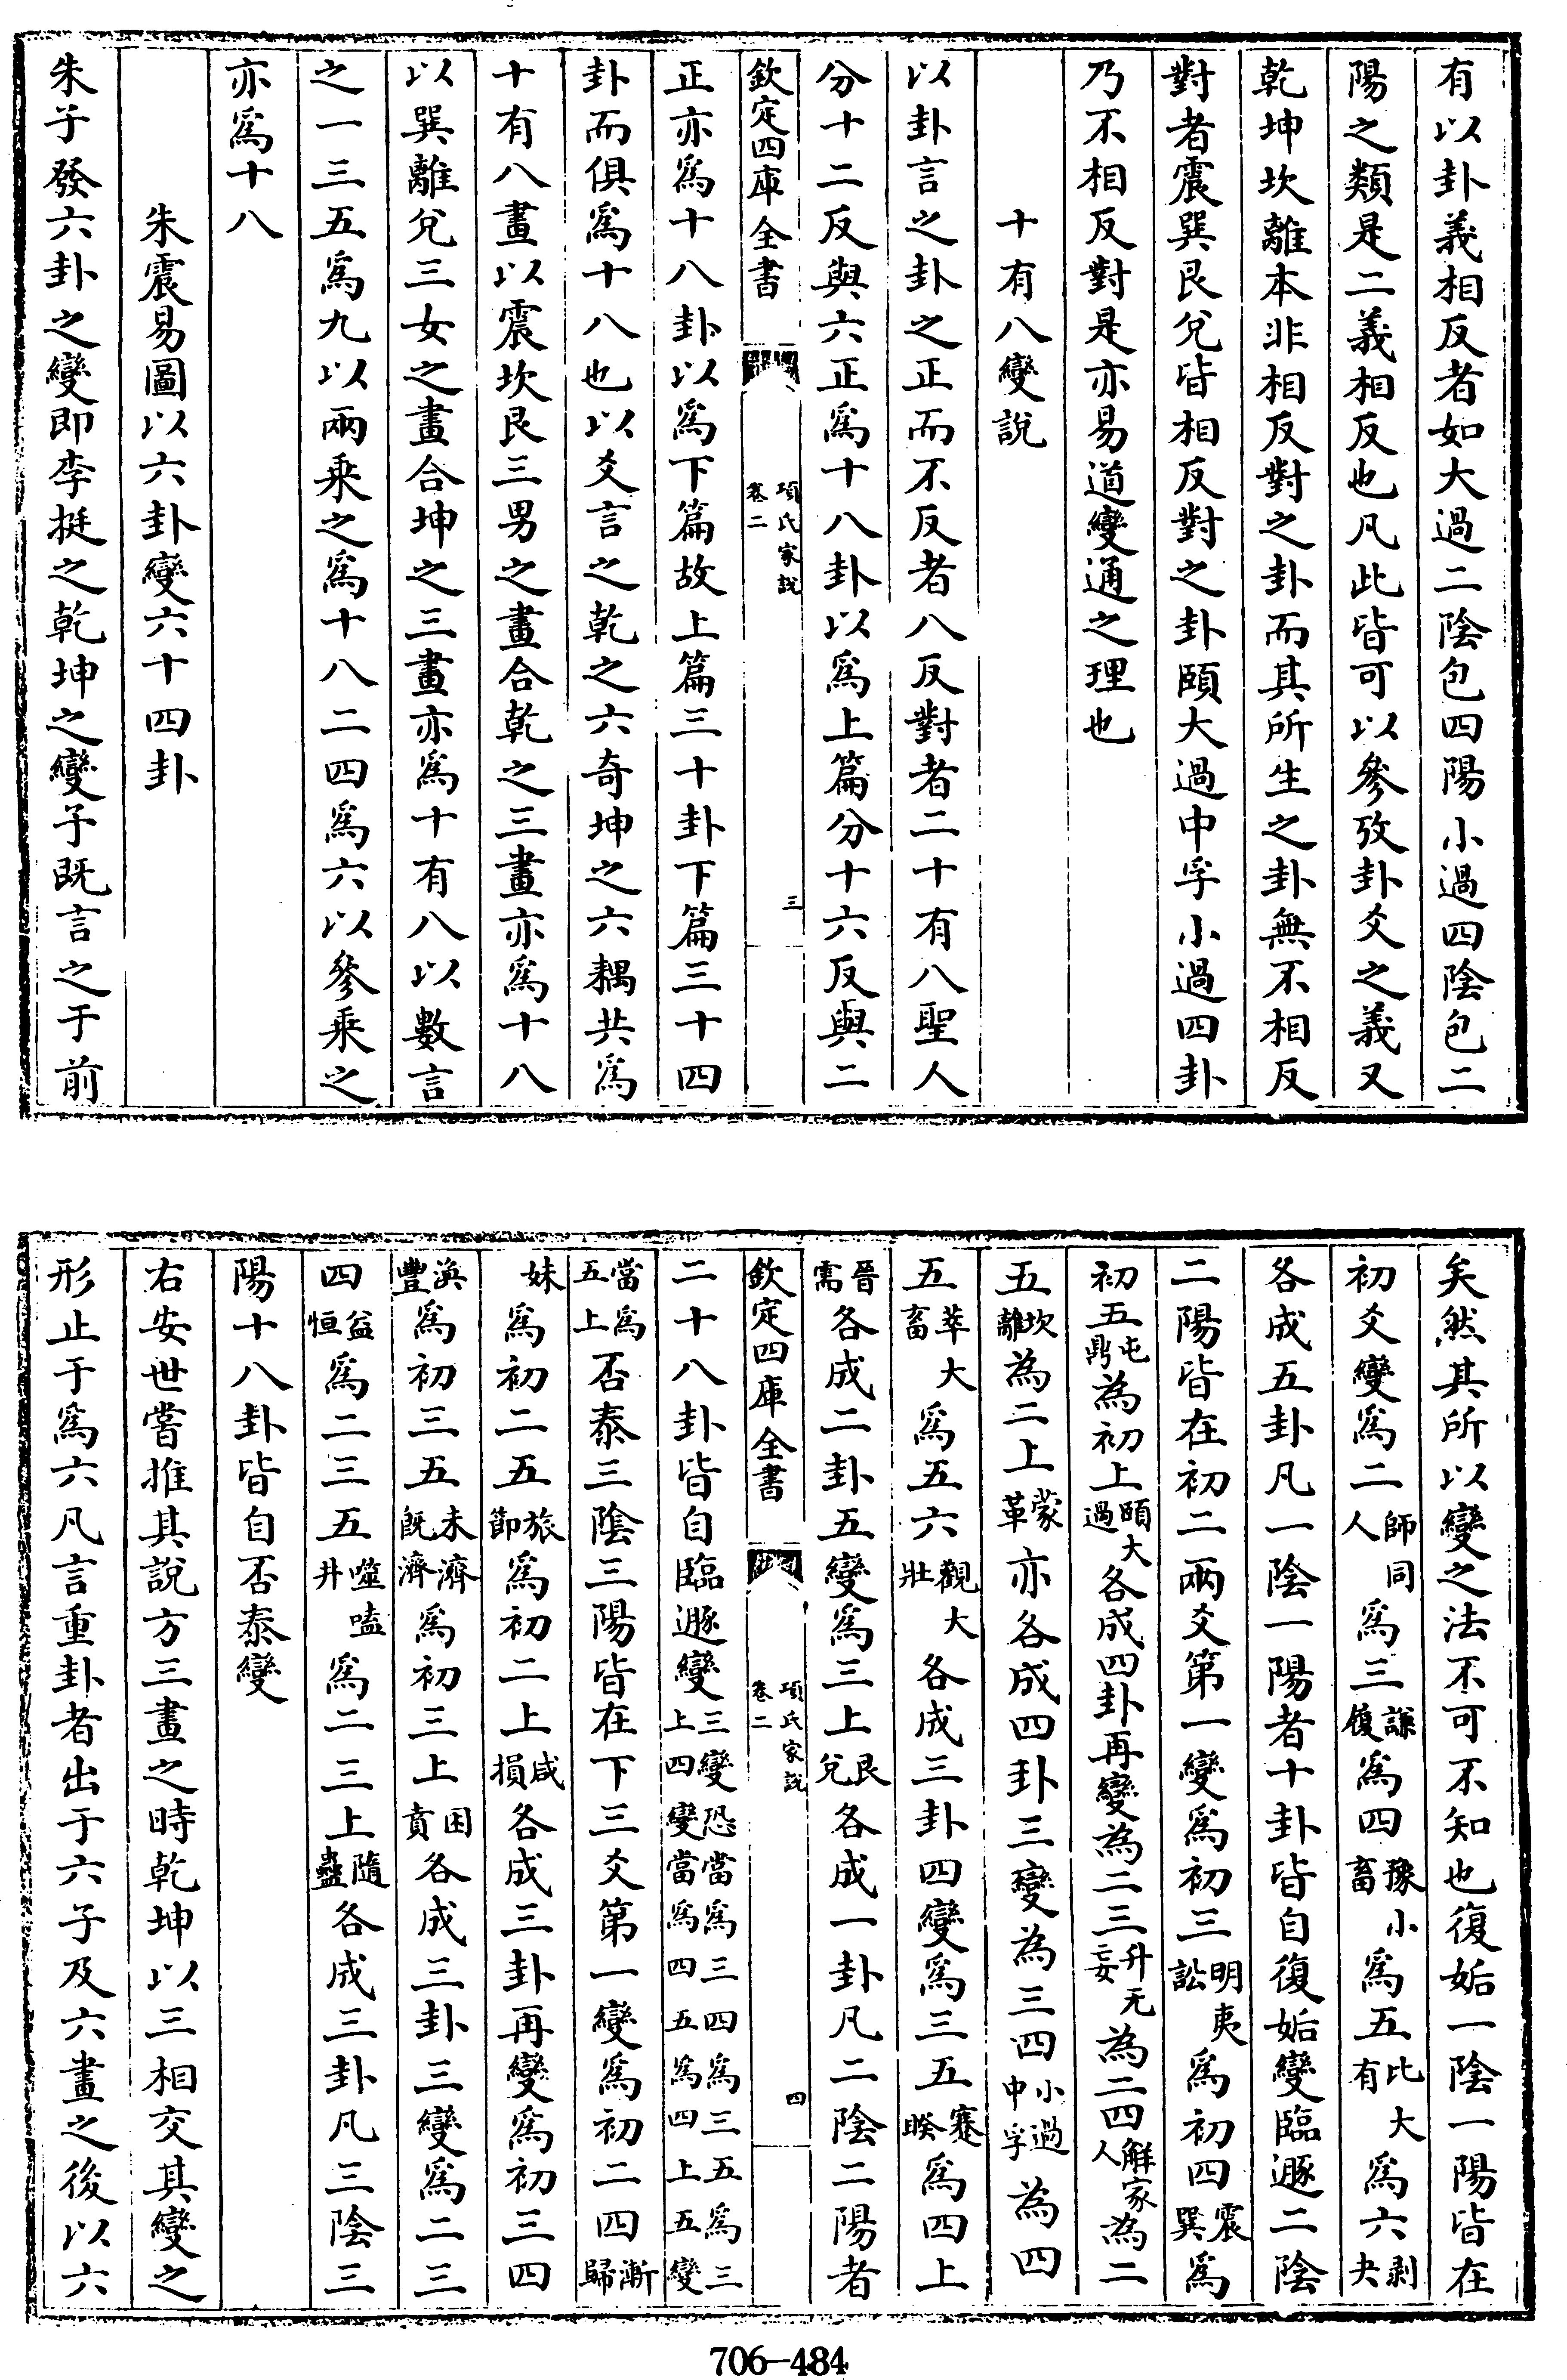 有以卦義相反者如大過二陰包四陽小過四陰包二
陽之類是二義相反也凡此皆可以參攷卦爻之義又
乾坤坎離本非相反對之卦而其所生之卦無不相反
對者震巽艮兌皆相反對之卦頤大過中孚小過四卦
乃不相反對是亦易道變通之理也
十有八變說
以卦言之卦之正而不反者八反對者二十有八聖人
分十二反與六正爲十八卦以爲上篇分十六反與二
欽定四庫全書
項氏家說
卷二
三
正亦爲十八卦以爲下篇故上篇三十卦下篇三十四
卦而俱爲十八也以爻言之乾之六奇坤之六耦共爲
十有八畫以震坎艮三男之畫合乾之三畫亦爲十八
以巽離兌三女之畫合坤之三畫亦爲十有八以數言
之一三五爲九以兩乘之爲十八二四爲六以參乘之
亦爲十八
朱震易圖以六卦變六十四卦
朱子發六卦之變即李挺之乾坤之變子既言之于前
矣然其所以變之法不可不知也復姤一陰一陽皆在
初爻變爲二師同人爲三謙履爲四豫小畜爲五比大有爲六剥夬
各成五卦凡一陰一陽者十卦皆自復姤變臨遯二陰
二陽皆在初二兩爻第一變爲初三明夷訟爲初四震巽爲
初五屯鼎為初上頤大過各成四卦再變為二三升无妄為二四解家人為二
五坎離為二上蒙革亦各成四卦三變為三四小過中孚為四
五萃大畜爲五六觀大壯各成三卦四變爲三五蹇睽爲四上
晉需各成二卦五變爲三上艮兌各成一卦凡二陰二陽者
欽定四庫全書
項氏家說
卷二
四
二十八卦皆自臨遯變三變恐當爲三四爲三五爲三上四變當爲四五爲四上五變
當爲五上否泰三陰三陽皆在下三爻第一變爲初二四漸歸
妹爲初二五旅節爲初二上咸損各成三卦再變爲初三四
渙豐爲初三五未濟既濟爲初三上困賁各成三卦三變爲二三
四益恒爲二三五噬嗑井爲二三上隨蠱各成三卦凡三陰三
陽十八卦皆自否泰變
右安世嘗推其說方三畫之時乾坤以三相交其變之
形止于爲六凡言重卦者出于六子及六畫之後以六
706-484